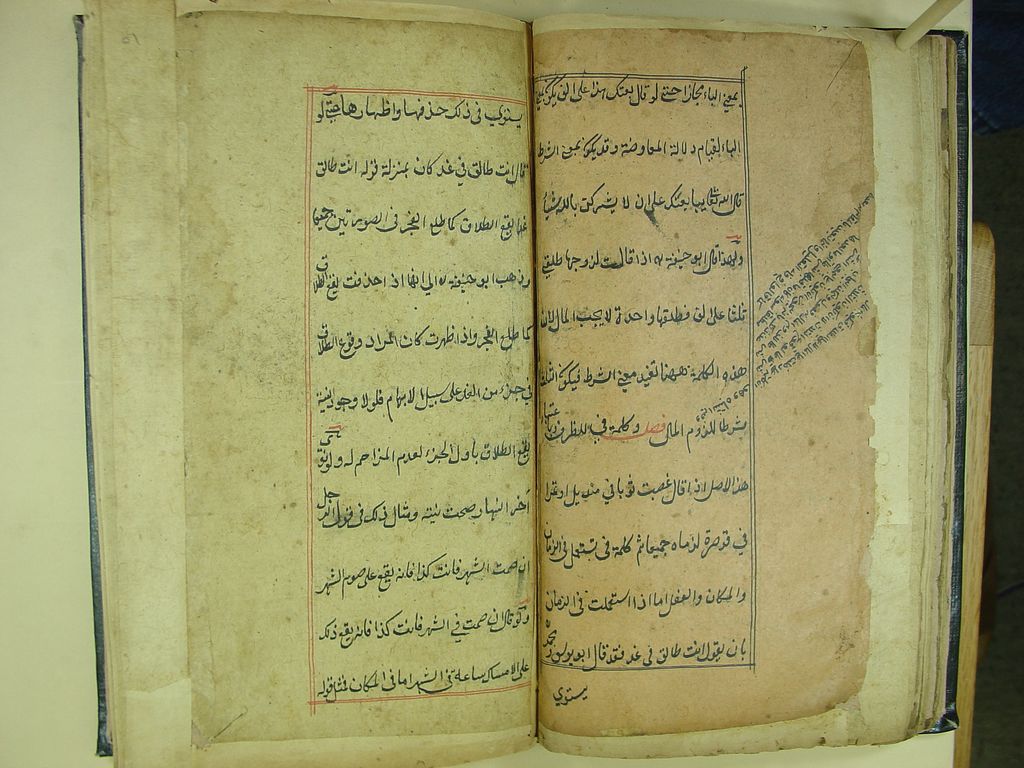 بمعنى الباء مجازا حتى لو قال بعتك هذا على الف يكون بمعنى
الباء لقيام دلالة المعاوضة وقد يكون بمعنى الشرط
قال الله تعالى يبايعنك على ان لا يشركن بالله شيئا
ولهذا قال ابو حنيفة ره اذا قالت لزوجها طلقني
ثلثا على الف وطلقها واحدة لا يجب المال لان
هذه الكلمة ههنا تفيد معنى الشرط فيكون الثلث
شرطا للزوم المال فصل وكلمة في للظرف وباعتبار
هذا الاصل اذا قال غصبت ثوبا في منديل او تمرا
في قوصرة لزماه جميعا ثم كلمة في تستعمل في الزمان
والمكان والفعل اما اذا استعملت في الزمان
بان يقول انت طالق في غد فقد قال ابو يوسف ومحمد
يستوي
يستوي في ذلك حذفها واظهارها حتى لو
قال انت طالق في غد كان بمنزلة قوله انت طالق
غدا يقع الطلاق كما طلع الفجر في الصورتين جميعا
وذهب ابو حنيفة ره الى انها اذا حذفت يقع الطلاق
كما طلع الفجر واذا ظهرت كان المراد وقوع الطلاق
في جزء من الغد على سبيل الابهام فلولا وجود النية
يقع الطلاق باول الجزء لعدم المزاحم له ولو نوى
آخر النهار صحت نيته ومثال ذلك في قول الرجل
ان صمت الشهر فانت كذا فانه يقع على صوم الشهر
ولو قال ان صمت في الشهر فانت كذا فانه يقع ذلك
على الامساك ساعة في الشهر اما في المكان فمثل قوله